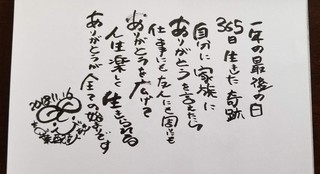 一年の最後の日
365日生きた奇跡
自分に家族に
ありがとうを言えたら
仕事にも友人にも周にも
ありがとうを広げて
人生楽しく生きられる
ありがとうが全ての始まりです
11.6